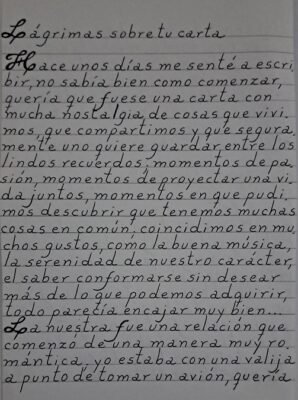 Lágrimas sobre tu carta
Hace unos días me senté a escri
bir, no sabía bien como comenzar,
quería que fuese una carta con
mucha nostalgia, de cosas que vivi
mos, que compartimos y que segura
mente uno quiere guardar entre los
lindos recuerdos, momentos de pa
sión, momentos de proyectar una vi
da juntos, momentos en que pudi
mos descubrir que tenemos muchas
cosas en común, coincidimos en mu
chos gustos, como la buena música,
la serenidad de nuestro carácter,
el saber conformarse sin desear
más de lo que podemos adquirir,
todo parecía encajar muy bien...
La nuestra fue una relación que
comenzó de una manera muy ro
mántica, yo estaba con una valija
a punto de tomar un avión, quería